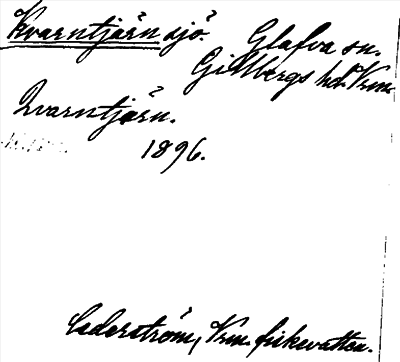 Kvarntjärn sjö. Glafva sn.
Gillbergs hd. Vrm.
Qvarntjärn.
1896.
Cederström, Vrm. fiskevatten.